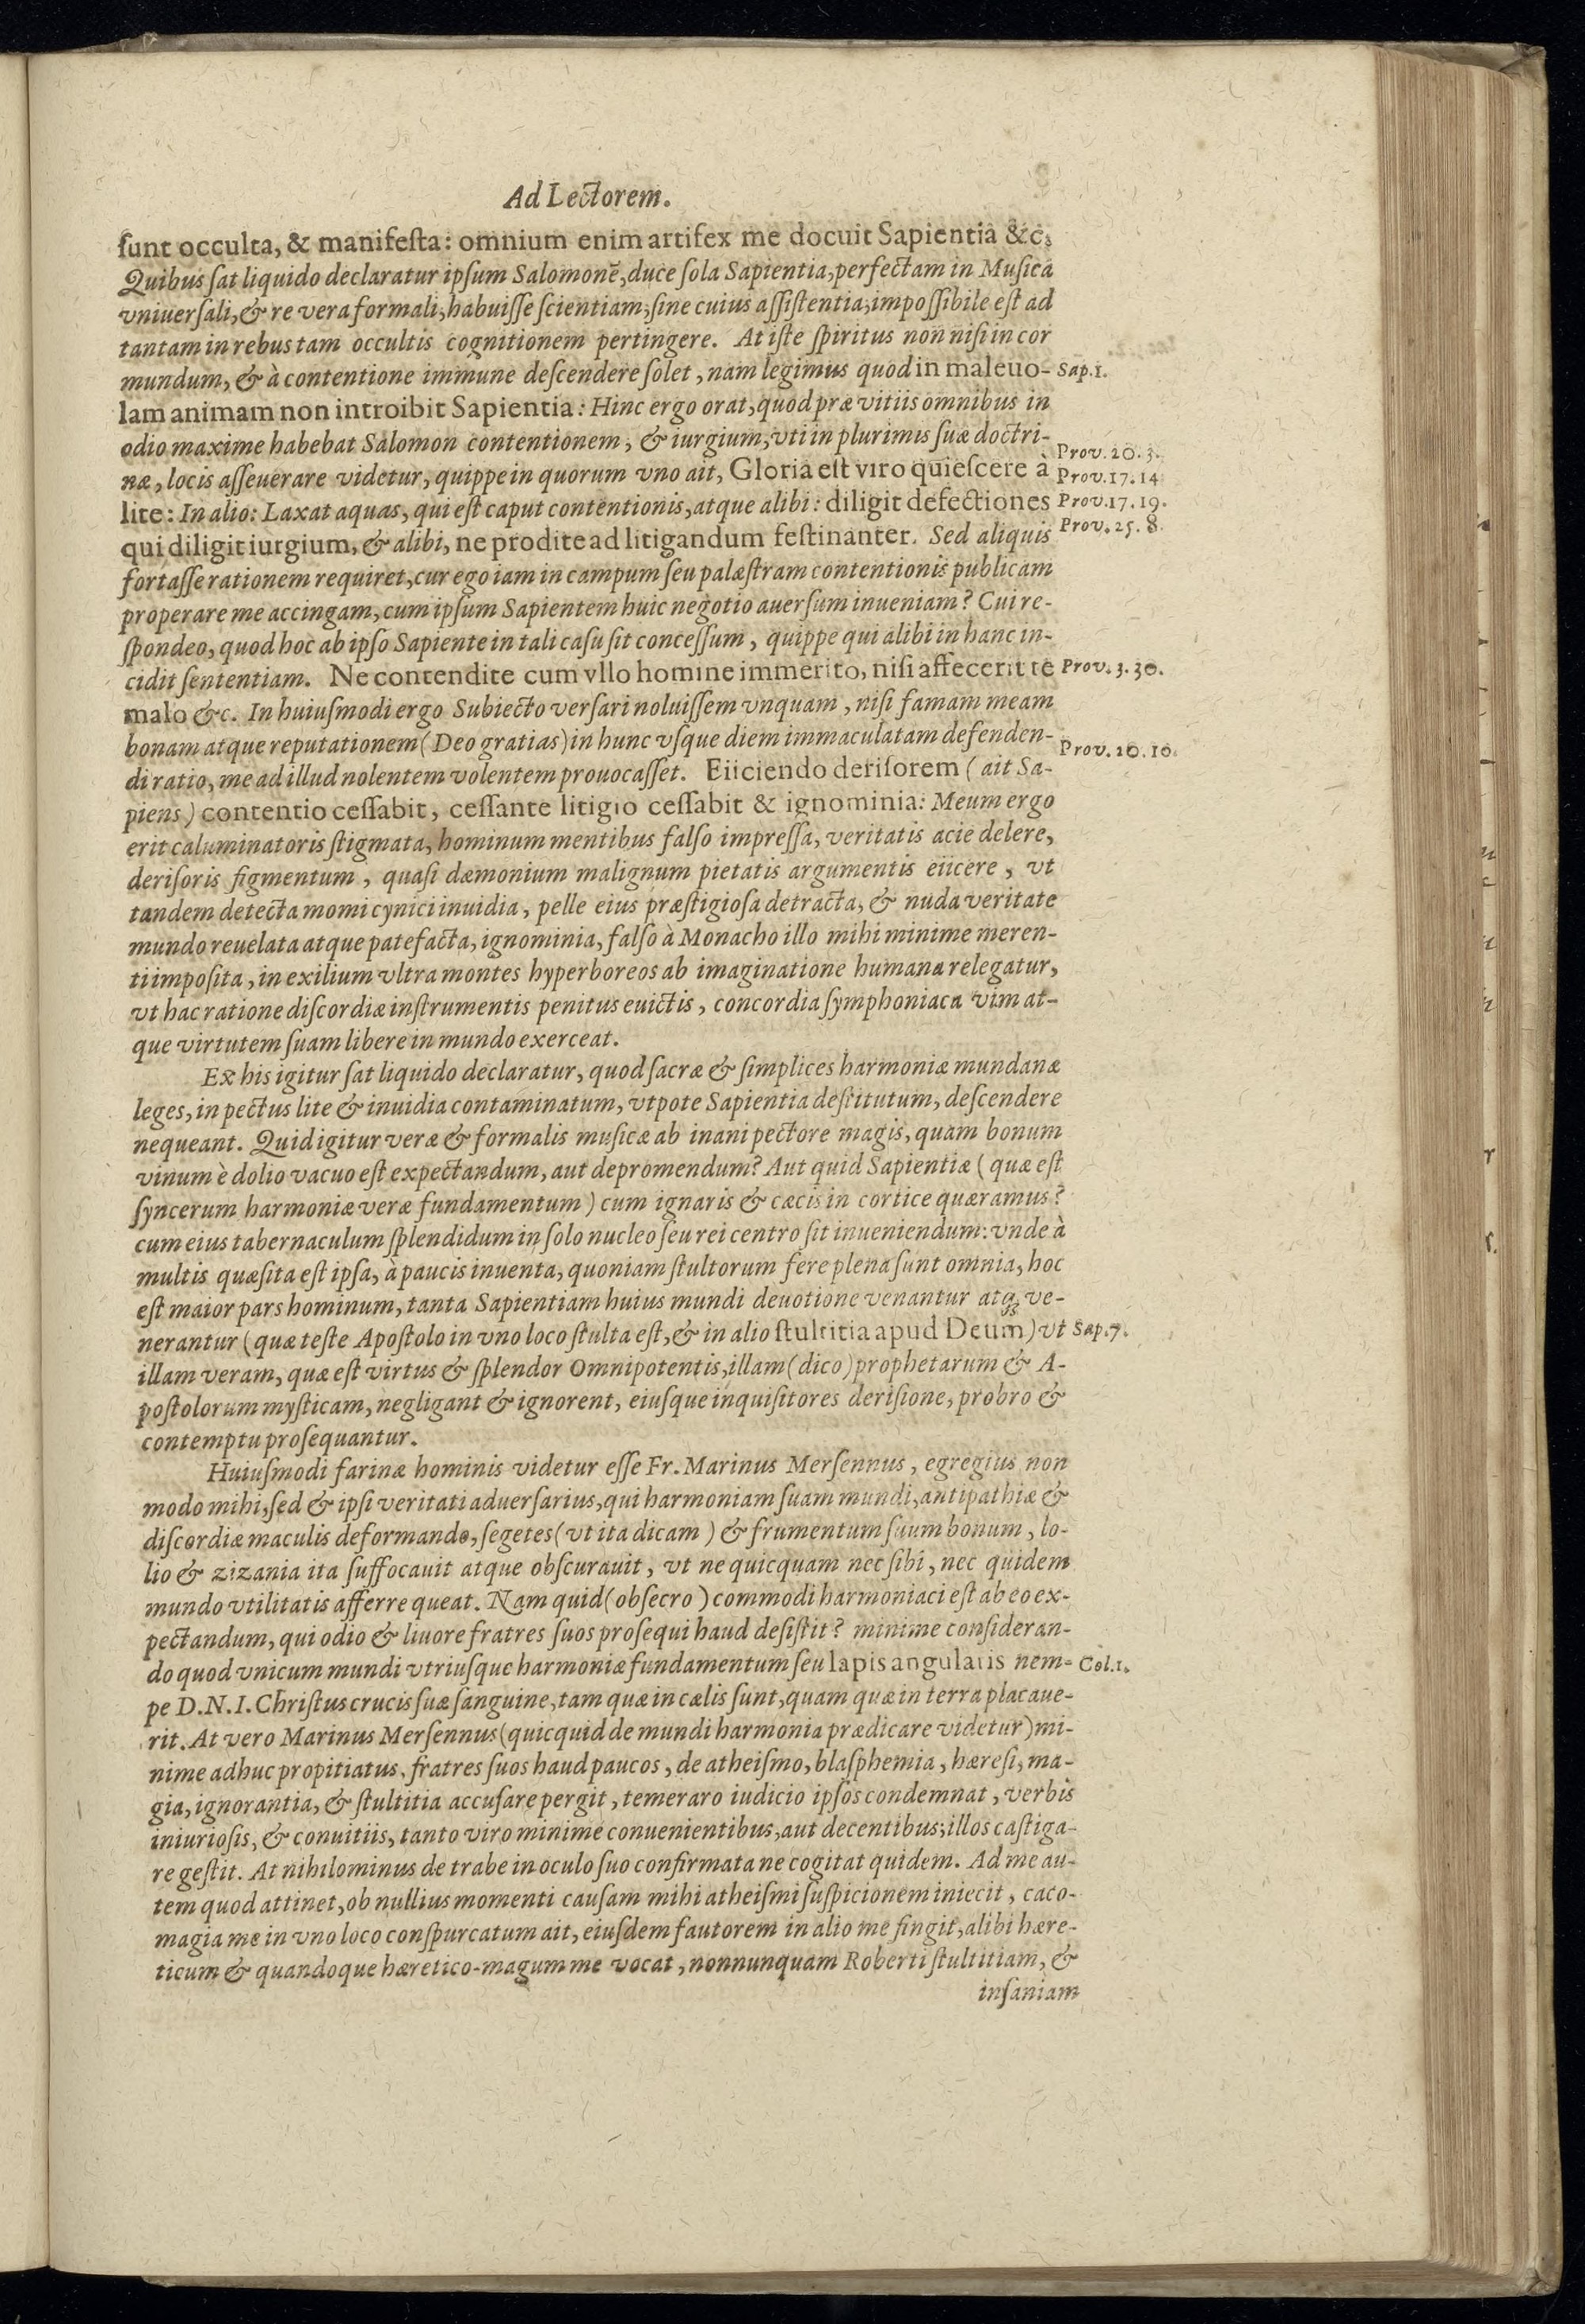 Ad Lectorem.
ſunt occulta, & manifeſta: omnium enim artifex me docuit Sapientia &c.
Quibus ſat liquido declaratur ipſum Salomonē, duce ſola Sapientia, perfectam in Muſica
vniuerſali, & re vera formali, habuiſſe ſcientiam, ſine cuius aſſiſtentia, impoſſibile eſt ad
tantam in rebus tam occultis cognitionem pertingere. At iſte ſpiritus non niſi in cor
mundum, & à contentione immune deſcendere ſolet, nam legimus quod in maleuo- Sap. 1.
lam animam non introibit Sapientia: Hinc ergo orat, quod præ vitiis omnibus in
odio maxime habebat Salomon contentionem, & iurgium, vti in plurimis ſuæ doctri-
Prov. 20. 3.
næ, locis aſſeuerare videtur, quippe in quorum vno ait, Gloria eſt viro quieſcere à Prov. 17. 14
lite: In alio: Laxat aquas, qui eſt caput contentionis, atque alibi: diligit defectiones Prov. 17. 19.
qui diligit iurgium, & alibi, ne prodite ad litigandum feſtinanter. Sed aliquis Prov. 25. 8.
fortaſſe rationem requiret, cur ego iam in campum ſeu palæſtram contentionis publicam
properare me accingam, cum ipſum Sapientem huic negotio auerſum inueniam? Cui re-
ſpondeo, quod hoc ab ipſo Sapiente in tali caſu ſit conceſſum, quippe qui alibi in hanc in-
cidit ſententiam. Ne contendite cum vllo homine immerito, niſi affecerit te Prov. 3. 30.
malo &c. In huiuſmodi ergo Subiecto verſari noluiſſem vnquam, niſi famam meam
bonam atque reputationem (Deo gratias) in hunc vſque diem immaculatam defenden-
Prov. 20. 10.
di ratio, me ad illud nolentem volentem prouocaſſet. Eiiciendo deriſorem (ait Sa-
piens) contentio ceſſabit, ceſſante litigio ceſſabit & ignominia: Meum ergo
erit caluminatoris ſtigmata, hominum mentibus falſo impreſſa, veritatis acie delere,
deriſoris figmentum, quaſi dæmonium malignum pietatis argumentis eiicere, vt
tandem detecta momi cynici inuidia, pelle eius præſtigioſa detracta, & nuda veritate
mundo reuelata atque patefacta, ignominia, falſo à Monacho illo mihi minime meren-
ti impoſita, in exilium vltra montes hyperboreos ab imaginatione humana relegatur,
vt hac ratione diſcordiæ inſtrumentis penitus euictis, concordia ſymphoniaca vim at-
que virtutem ſuam libere in mundo exerceat.
Ex his igitur ſat liquido declaratur, quod ſacræ & ſimplices harmoniæ mundanæ
leges, in pectus lite & inuidia contaminatum, vtpote Sapientia deſtitutum, deſcendere
nequeant. Quid igitur veræ & formalis muſicæ ab inani pectore magis, quam bonum
vinum è dolio vacuo eſt expectandum, aut depromendum? Aut quid Sapientiæ (quæ eſt
ſyncerum harmoniæ veræ fundamentum) cum ignaris & cæcis in cortice quæramus?
cum eius tabernaculum ſplendidum in ſolo nucleo ſeu rei centro ſit inueniendum: vnde à
multis quæſita eſt ipſa, à paucis inuenta, quoniam ſtultorum fere plena ſunt omnia, hoc
eſt maior pars hominum, tanta Sapientiam huius mundi deuotione venantur atq; ve-
nerantur (quæ teſte Apoſtolo in vno loco ſtulta eſt, & in alio ſtultitia apud Deum) vt Sap. 7.
illam veram, quæ eſt virtus & ſplendor Omnipotentis, illam (dico) prophetarum & A-
poſtolorum myſticam, negligant & ignorent, eiuſque inquiſitores deriſione, probro &
contemptu proſequantur.
Huiuſmodi farinæ hominis videtur eſſe Fr. Marinus Merſennus, egregius non
modo mihi, ſed & ipſi veritati aduerſarius, qui harmoniam ſuam mundi, antipathiæ &
diſcordiæ maculis deformando, ſegetes (vt ita dicam) & frumentum ſuum bonum, lo-
lio & zizania ita ſuffocauit atque obſcurauit, vt ne quicquam nec ſibi, nec quidem
mundo vtilitatis afferre queat. Nam quid (obſecro) commodi harmoniaci eſt ab eo ex-
pectandum, qui odio & liuore fratres ſuos proſequi haud deſiſtit? minime conſideran-
do quod vnicum mundi vtriuſque harmoniæ fundamentum ſeu lapis angularis nem- Col. 1.
pe D. N. I. Chriſtus crucis ſuæ ſanguine, tam quæ in cælis ſunt, quam quæ in terra placaue-
rit. At vero Marinus Merſennus (quicquid de mundi harmonia prædicare videtur) mi-
nime adhuc propitiatus, fratres ſuos haud paucos, de atheiſmo, blaſphemia, hæreſi, ma-
gia, ignorantia, & ſtultitia accuſare pergit, temeraro iudicio ipſos condemnat, verbis
iniurioſis, & conuitiis, tanto viro minime conuenientibus, aut decentibus, illos caſtiga-
re geſtit. At nihilominus de trabe in oculo ſuo confirmata ne cogitat quidem. Ad me au-
tem quod attinet, ob nullius momenti cauſam mihi atheiſmi ſuſpicionem iniecit, caco-
magia me in vno loco conſpurcatum ait, eiuſdem fautorem in alio me fingit, alibi hære-
ticum & quandoque hæretico-magum me vocat, nonnunquam Roberti ſtultitiam, &
inſaniam